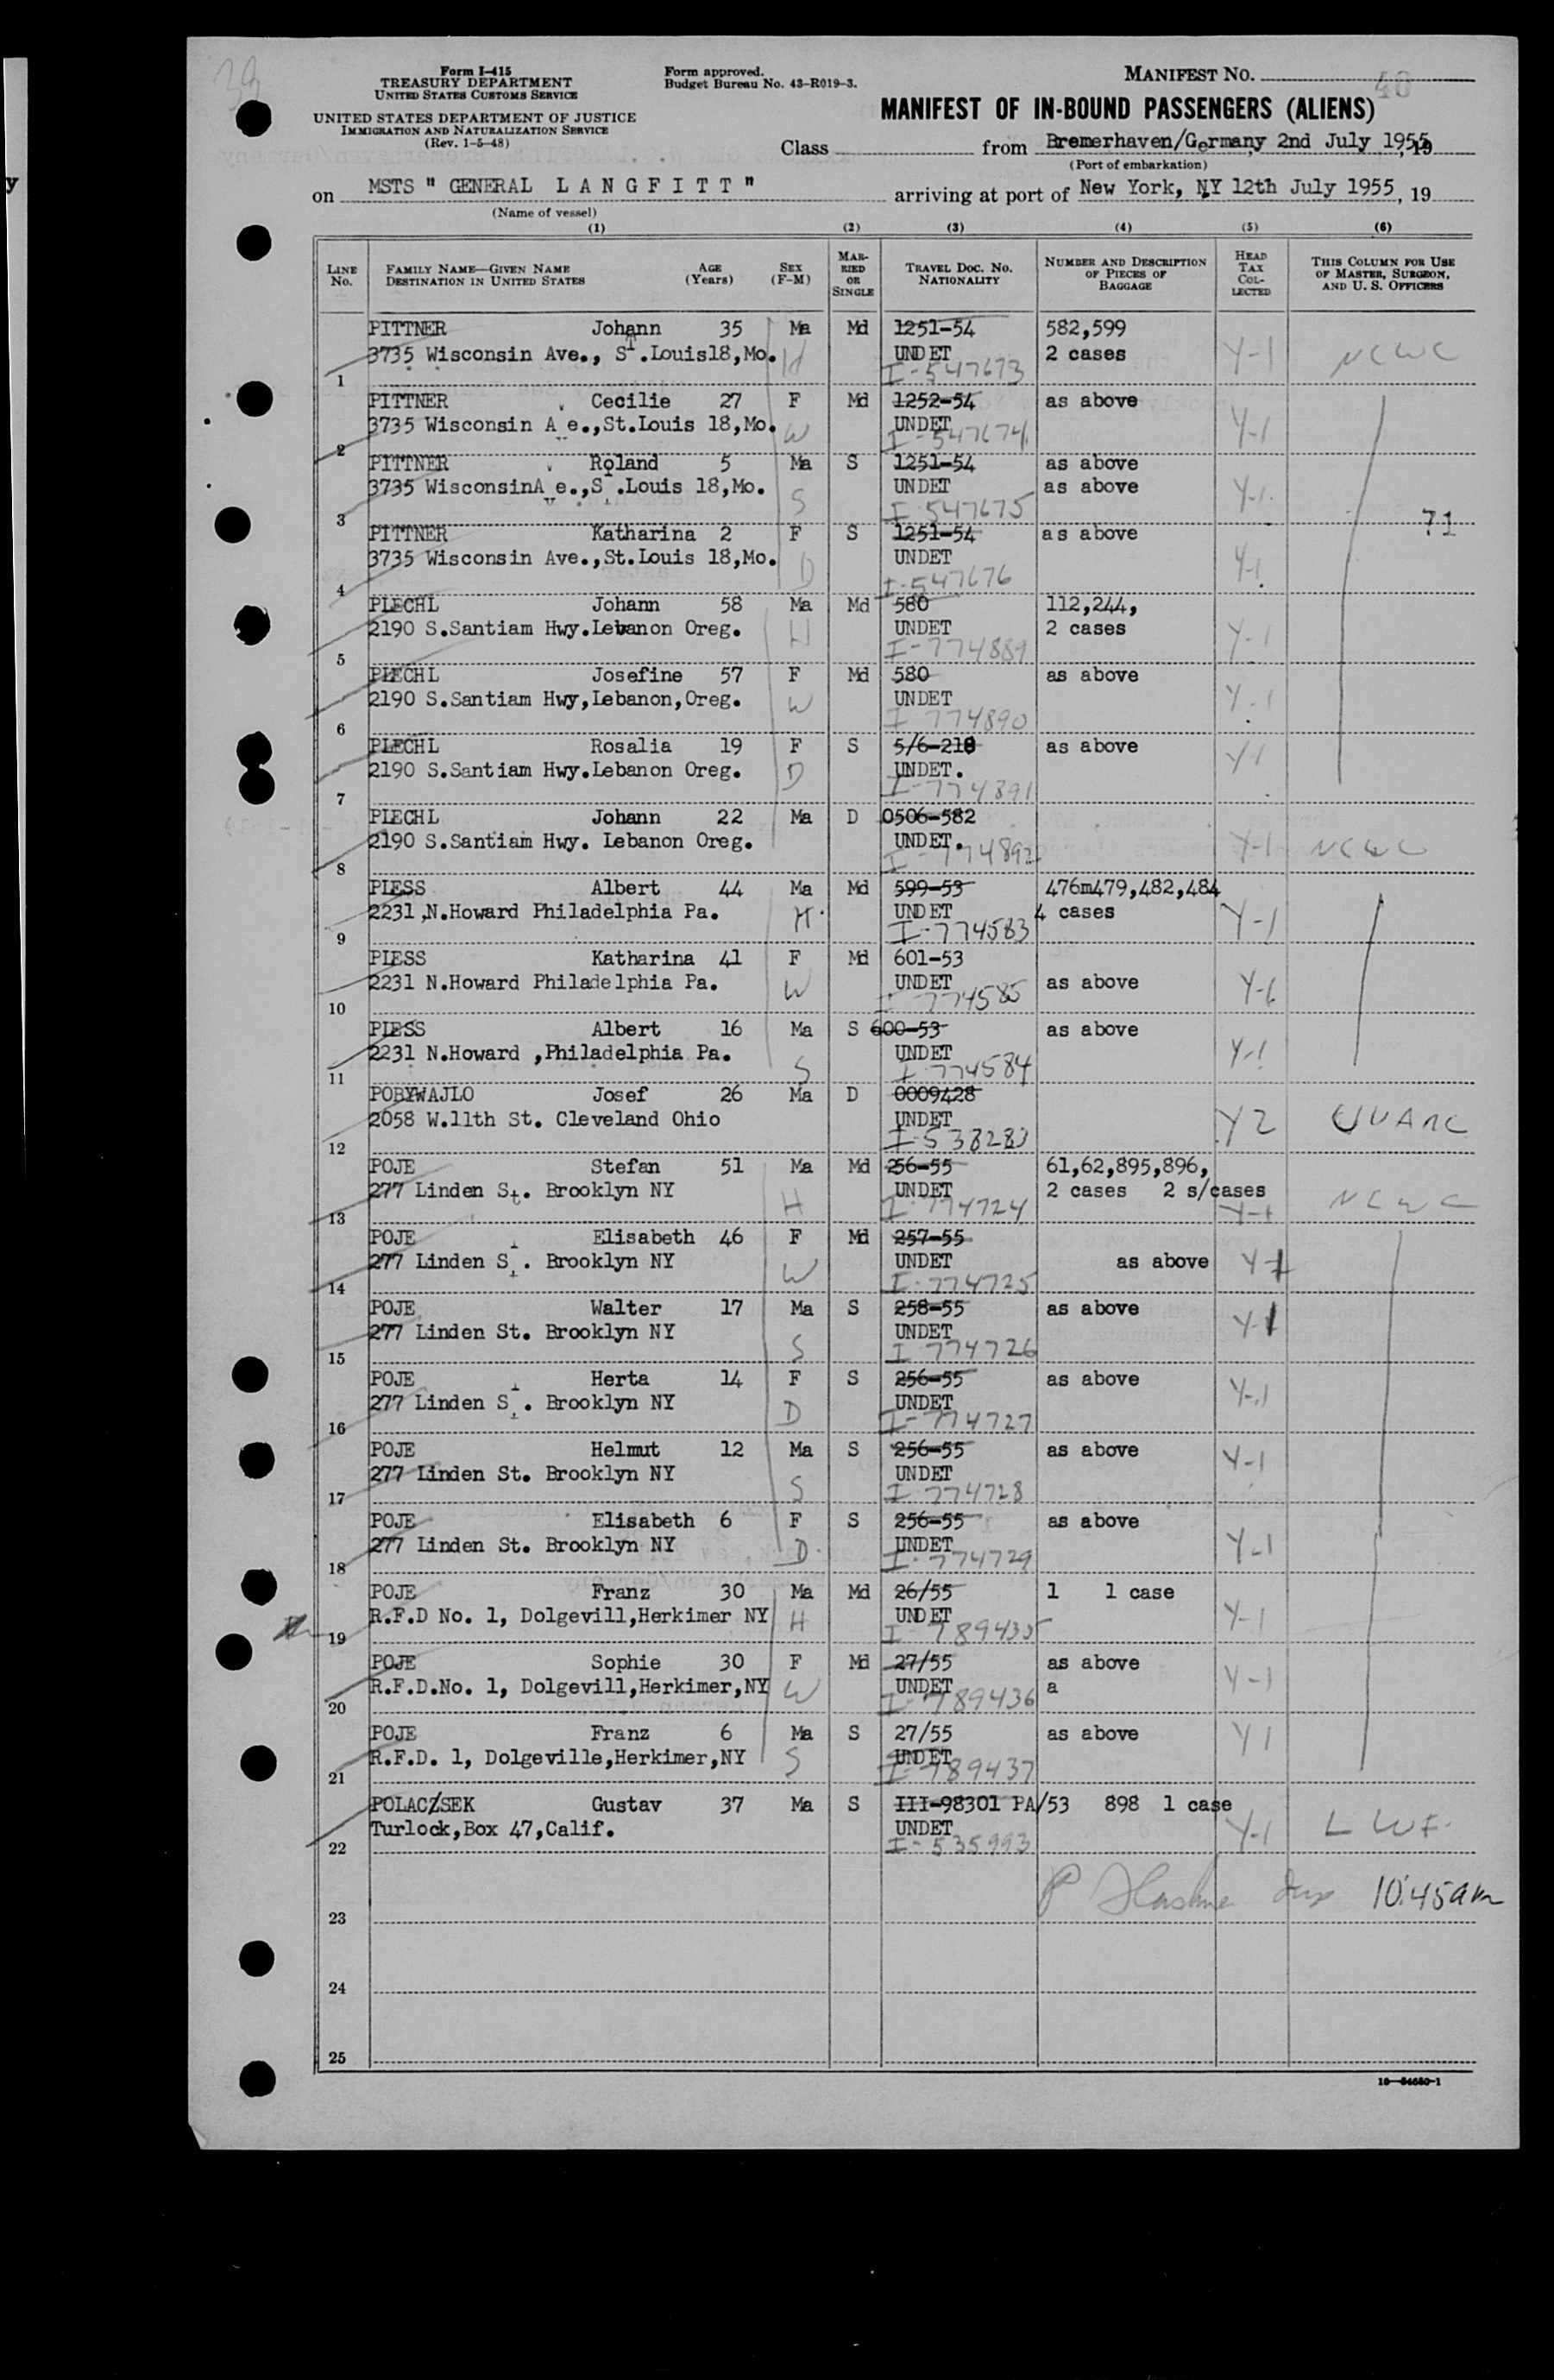 39
Form I-415
TREASURY DEPARTMENT
UNITED STATES CUSTOMS SERVICE
UNITED STATES DEPARTMENT OF JUSTICE
IMMIGRATION AND NATURALIZATION SERVICE
(Rev. 1-5-48)
Form approved.
Budget Bureau No. 43-R019-3.
MANIFEST NO. 40
MANIFEST OF IN-BOUND PASSENGERS (ALIENS)
Class from Bremerhaven/Germany 2nd July 1955, 19
(Port of embarkation)
on MSTS " GENERAL LANGFITT " arriving at port of New York, NY 12th July 1955, 19
(Name of vessel)
(1) (2) (3) (4) (5) (6)
LINE NO. FAMILY NAME—GIVEN NAME DESTINATION IN UNITED STATES AGE (Years) SEX (F-M) MARRIED OR SINGLE TRAVEL DOC. NO. NATIONALITY NUMBER AND DESCRIPTION OF PIECES OF BAGGAGE HEAD TAX COLLECTED THIS COLUMN FOR USE OF MASTER, SURGEON, AND U. S. OFFICERS
PITTNER Johann 35 Ma Md 1251-54 582,599
3735 Wisconsin Ave., St.Louis18,Mo. H UNDET 2 cases Y-1 NCWC
1 I-547673
PITTNER Cecilie 27 F Md 1252-54 as above
3735 Wisconsin A e.,St.Louis 18,Mo. W UNDET Y-1
2 I-547674
PITTNER Roland 5 Ma S 1251-54 as above
3735 WisconsinA e.,S .Louis 18,Mo. S UNDET as above Y-1
3 I 547675
71
PITTNER Katharina 2 F S 1251-54 as above
3735 Wisconsin Ave.,St.Louis 18,Mo. D UNDET Y-1
4 I-547676
PLECHL Johann 58 Ma Md 580 112,244,
2190 S.Santiam Hwy.Lebanon Oreg. H UNDET 2 cases Y-1
5 I-774889
PLECHL Josefine 57 F Md 580 as above
2190 S.Santiam Hwy,Lebanon,Oreg. W UNDET Y-1
6 I 774890
PLECHL Rosalia 19 F S 5/6-218 as above
2190 S.Santiam Hwy.Lebanon Oreg. D UNDET. Y1
7 I-774891
PLECHL Johann 22 Ma D 0506-582
2190 S.Santiam Hwy. Lebanon Oreg. UNDET. Y-1 NCWC
8 I-774892
PLESS Albert 44 Ma Md 599-53 476m479,482,484
2231,N.Howard Philadelphia Pa. H UNDET 4 cases Y-1
9 I-774583
PLESS Katharina 41 F Md 601-53
2231 N.Howard Philadelphia Pa. W UNDET as above Y-1
10 I-774585
PLESS Albert 16 Ma S 600-53 as above
2231 N.Howard ,Philadelphia Pa. S UNDET Y-1
11 I-774584
POBYWAJLO Josef 26 Ma D 0009428
2058 W.11th St. Cleveland Ohio UNDET Y2
12 I-538280
POJE Stefan 51 Ma Md 256-55 61,62,895,896,
277 Linden St. Brooklyn NY H UNDET 2 cases 2 s/cases Y-1 NCWC
13 I-774724
POJE Elisabeth 46 F Md 257-55
277 Linden St. Brooklyn NY W UNDET as above Y-1
14 I-774725
POJE Walter 17 Ma S 258-55 as above
277 Linden St. Brooklyn NY S UNDET Y-1
15 I 774726
POJE Herta 14 F S 256-55 as above
277 Linden St. Brooklyn NY D UNDET Y-1
16 I-774727
POJE Helmut 12 Ma S 256-55 as above
277 Linden St. Brooklyn NY S UNDET Y-1
17 I 774728
POJE Elisabeth 6 F S 256-55 as above
277 Linden St. Brooklyn NY D UNDET Y-1
18 I-774729
POJE Franz 30 Ma Md 26/55 1 1 case
R.F.D No. 1, Dolgevill,Herkimer NY H UNDET Y-1
19 I-789435
POJE Sophie 30 F Md 27/55 as above
R.F.D.No. 1, Dolgevill,Herkimer,NY W UNDET a Y-1
20 I-789436
POJE Franz 6 Ma S 27/55 as above
R.F.D. 1, Dolgeville,Herkimer,NY S UNDET Y1
21 I-789437
POLACZSEK Gustav 37 Ma S III-98301 PA/53 898 1 case
Turlock,Box 47,Calif. UNDET Y-1 LWF
22 I-535993
10:45am
23
24
25
16—54680-1